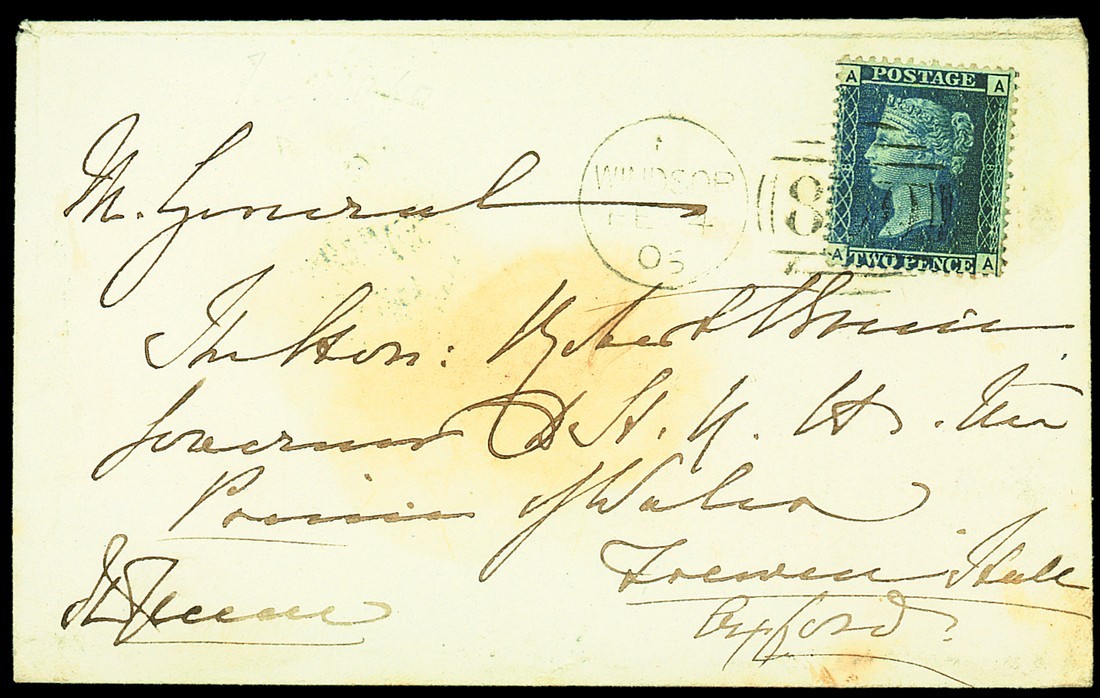 A POSTAGE A
1
WINDSOR
FE 4
8
M. General
A TWO PENCE A
The Hon: Robert Bruce
Governor to H. R. H. The
Prince of Wales
Frewen Hall
The Queen
Oxford